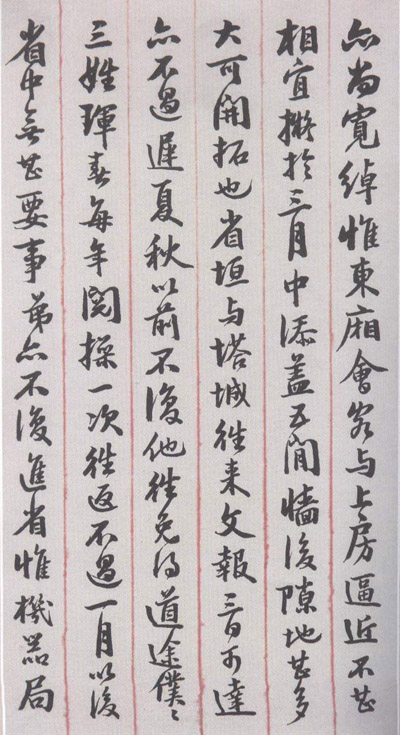 亦尚寬綽惟東廂會客与上房逼近不甚
相宜擬於三月中添蓋五間墻後隙地甚多
大可開拓也省垣与塔城往来文報三日可達
亦不過遲夏秋以前不復他往免得道途僕〻
三姓琿春每年閱操一次往返不過一月以後
省中無甚要事弟亦不復進省惟機器局